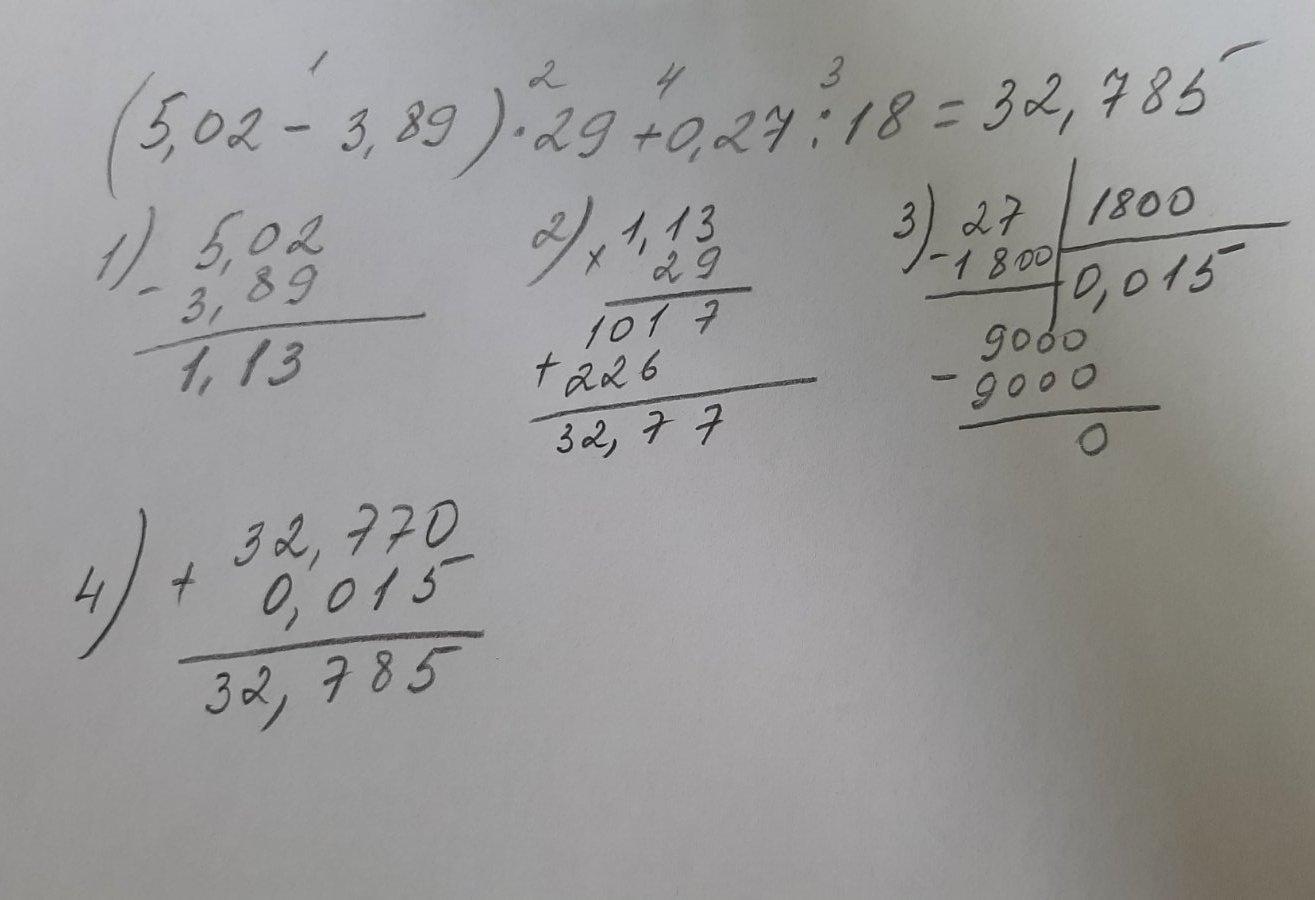 1 2 4 3
(5,02 - 3,89) · 29 + 0,27 : 18 = 32,785
1) - 5,02
3,89
1,13
2) × 1,13
29
1017
+ 226
32,77
3) - 27 | 1800
1800 | 0,015
9000
- 9000
0
4) + 32,770
0,015
32,785